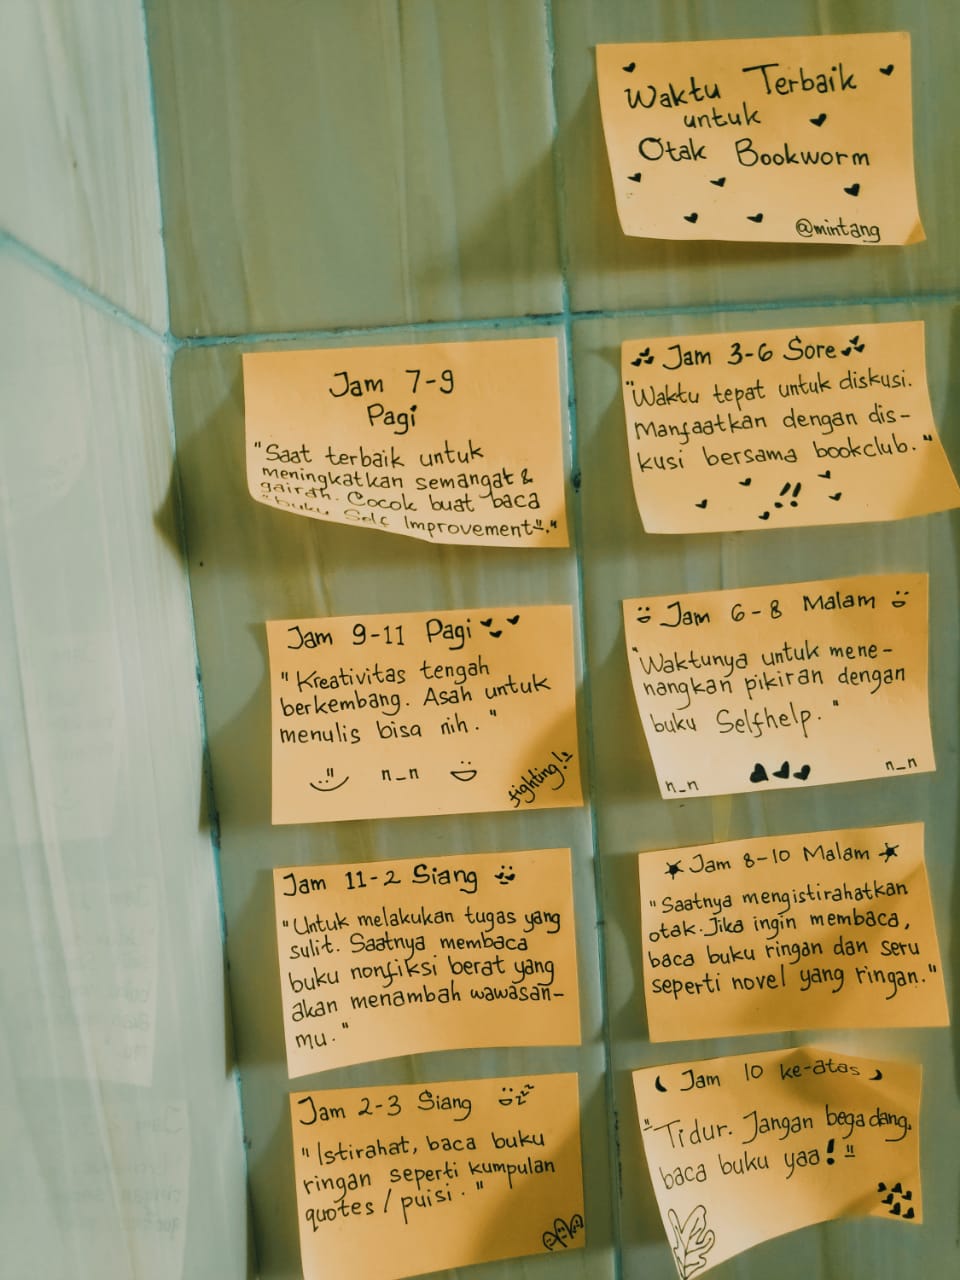 Waktu Terbaik
untuk
Otak Bookworm
@mintang
Jam 7-9
Pagi
"Saat terbaik untuk
meningkatkan semangat &
gairah. Cocok buat baca
"buku Self Improvement"."
Jam 9-11 Pagi
"Kreativitas tengah
berkembang. Asah untuk
menulis bisa nih."
n_n
fighting!!
Jam 11-2 Siang
"Untuk melakukan tugas yang
sulit. Saatnya membaca
buku nonfiksi berat yang
akan menambah wawasan-
mu."
Jam 2-3 Siang
zzz
"Istirahat, baca buku
ringan seperti kumpulan
quotes / puisi."
Jam 3-6 Sore
"Waktu tepat untuk diskusi.
Manfaatkan dengan dis-
kusi bersama bookclub."
!!
Jam 6-8 Malam
"Waktunya untuk mene-
nangkan pikiran dengan
buku Selfhelp."
n_n n_n
Jam 8-10 Malam
"Saatnya mengistirahatkan
otak. Jika ingin membaca,
baca buku ringan dan seru
seperti novel yang ringan."
Jam 10 ke-atas
"Tidur. Jangan begadang.
baca buku yaa!"